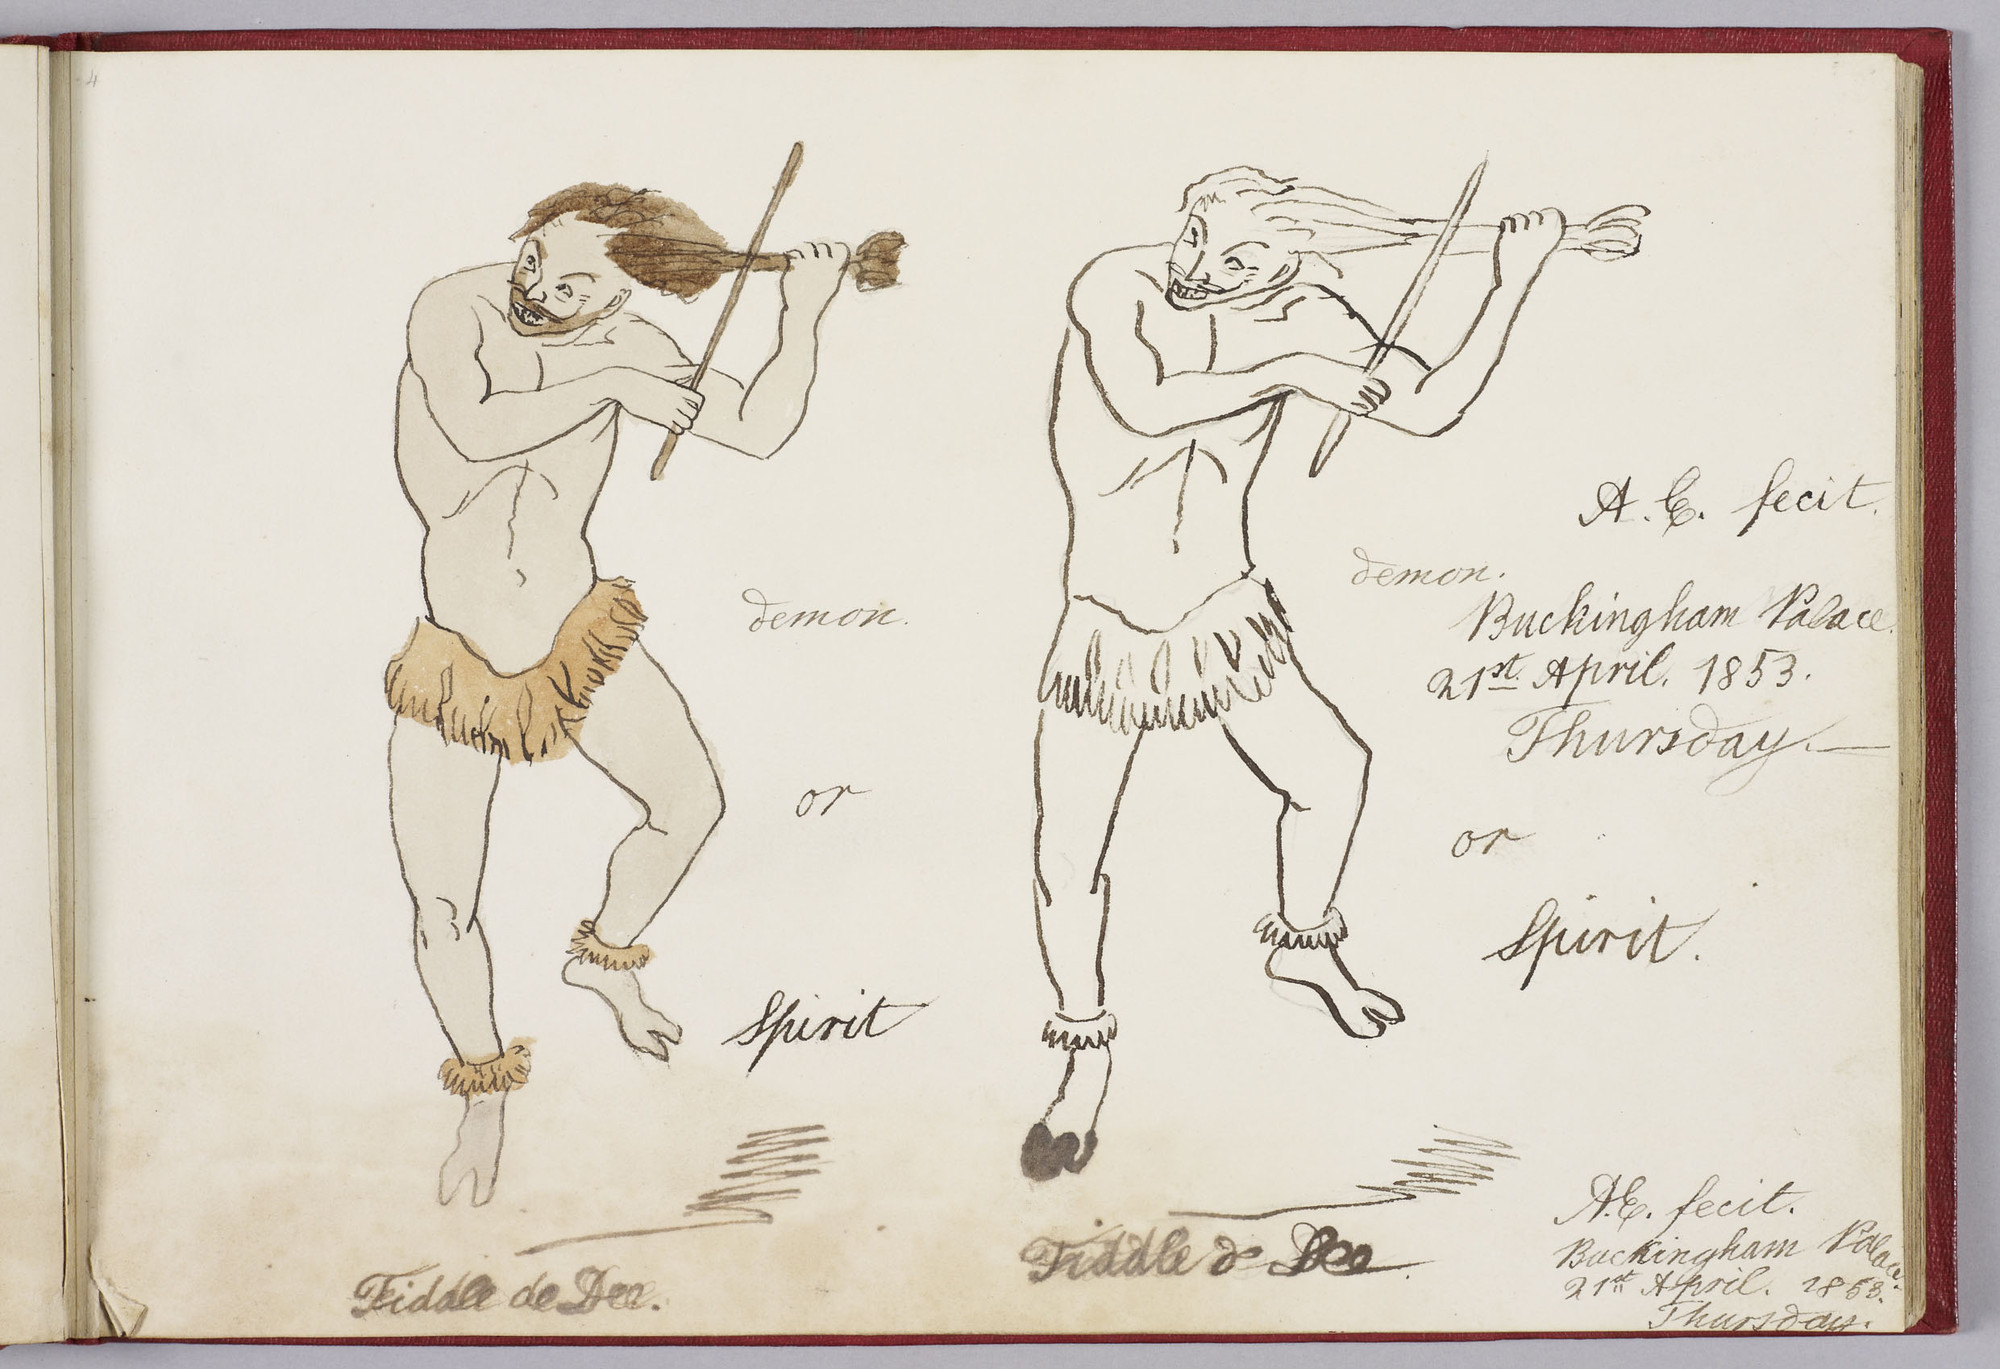 4
A. E. fecit.
demon.
Buckingham Palace.
demon.
21st April. 1853.
Thursday.—
or
or
Spirit.
Spirit
A.E. fecit.
Fiddle d Dee.
Buckingham Palace.
Fiddle de Dee.
21st April. 1853.
Thursday.